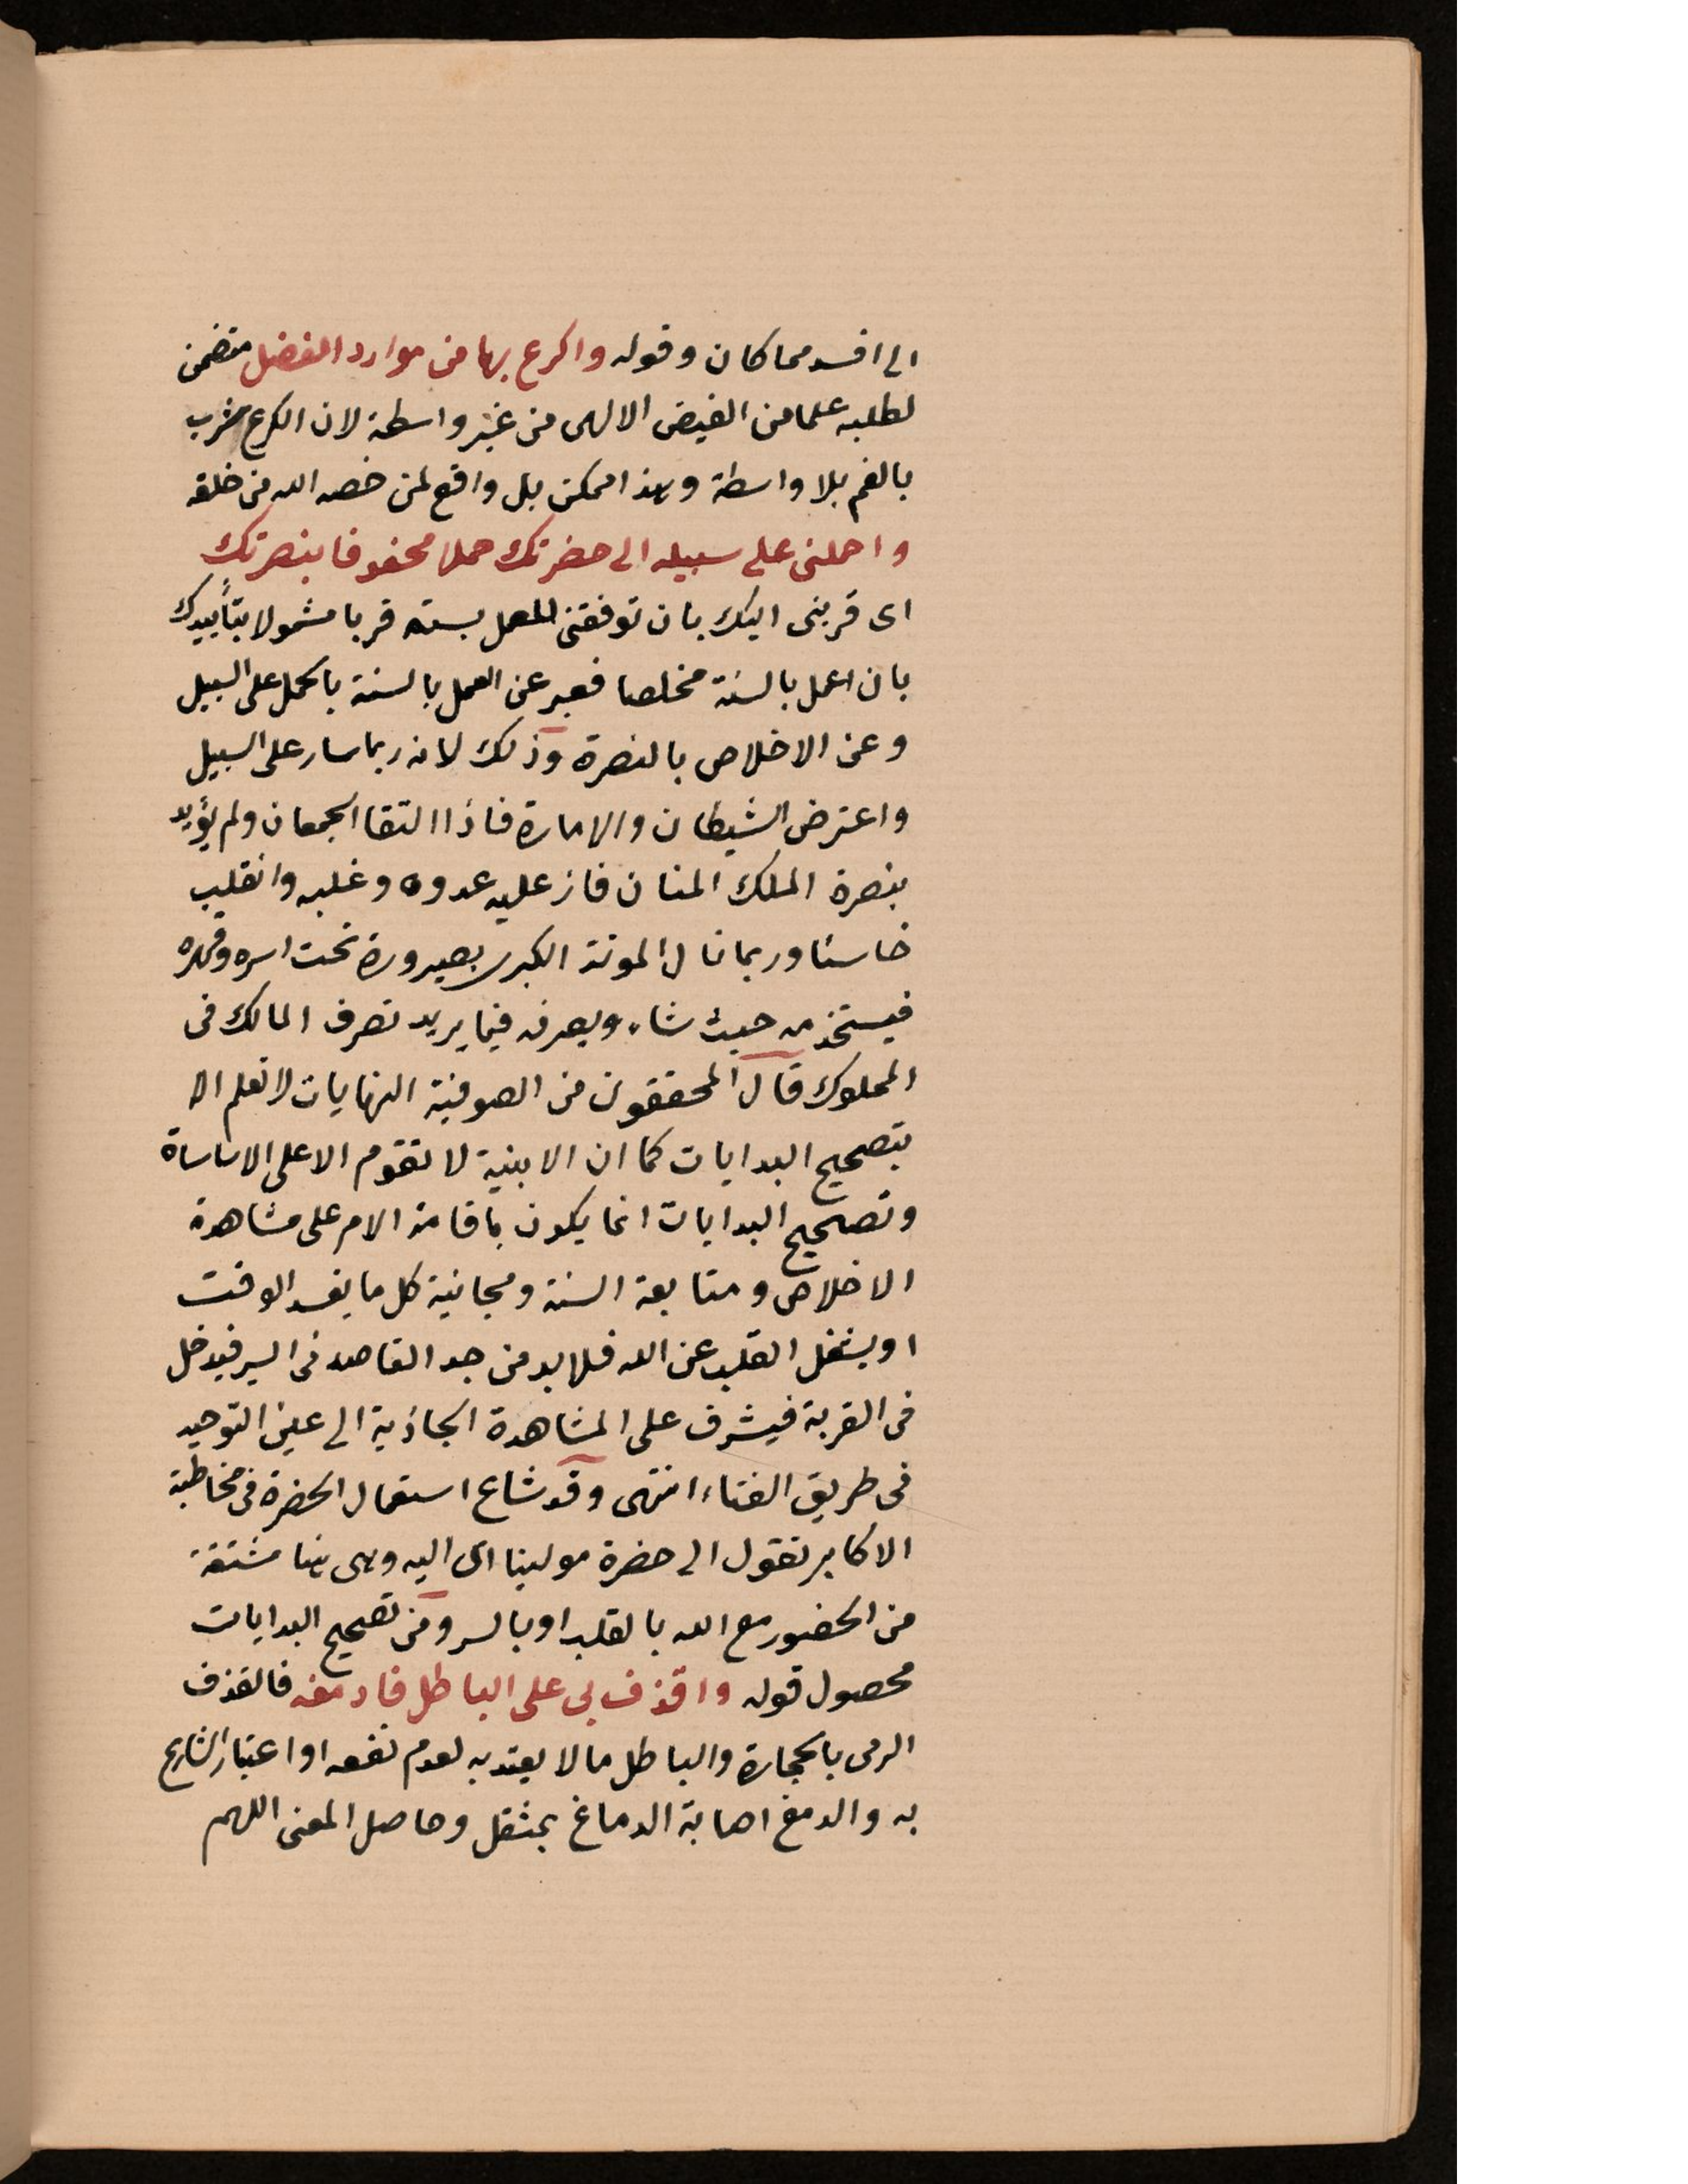 الى افسد مما كان وقوله واكرع بها من موارد الفضل متضمن
لطلبه علما من الفيض الالهى من غير واسطة لان الكرع شرب
بالفم بلا واسطة وهذا ممكن بل واقع لمن خصه الله من خلقه
واحملنى على سبيله الى حضرتك حملا محفوفا بنصرتك
اى قربنى اليك بان توفقنى للعمل بسنته قربا مشمولا بتأييدك
بان اعمل بالسنة مخلصا فعبر عن العمل بالسنة بالحمل على السبيل
وعن الاخلاص بالنصرة وذلك لانه ربما سار على السبيل
واعترض الشيطان والامارة فاذا التقا الجمعان ولم يؤيد
بنصرة الملك المنان فاز عليه عدوه وغلبه وانقلب
خاسئا وربما نال الموتة الكبرى بصيرورة تحت اسره وقهره
فيستخدمه حيث شاء ويصرفه فيما يريد تصرف المالك فى
المملوك قال المحققون من الصوفية النهايات لا تعلم الا
بتصحيح البدايات كما ان الابنية لا تقوم الا على الاساساة
وتصحيح البدايات انما يكون باقامة الامر على مشاهدة
الاخلاص ومتابعة السنة ومجانبة كل ما يفسد الوقت
او يشغل القلب عن الله فلا بد من جد القاصد فى السير فيدخل
فى القربة فيشرف على المشاهدة الجاذبة الى عين التوحيد
فى طريق الفناء انتهى وقد شاع استعمال الحضرة فى مخاطبة
الاكابر تقول الى حضرة مولينا اى اليه وهى هنا مشتقة
من الحضور مع الله بالقلب او بالسر ومن تصحيح البدايات
محصول قوله واقذف بى على الباطل فادمغه فالقذف
الرمى بالحجارة والباطل ما لا يعتد به لعدم نفعه او اعتبار الشارع
به والدمغ اصابة الدماغ بمثقل وحاصل المعنى اللهم